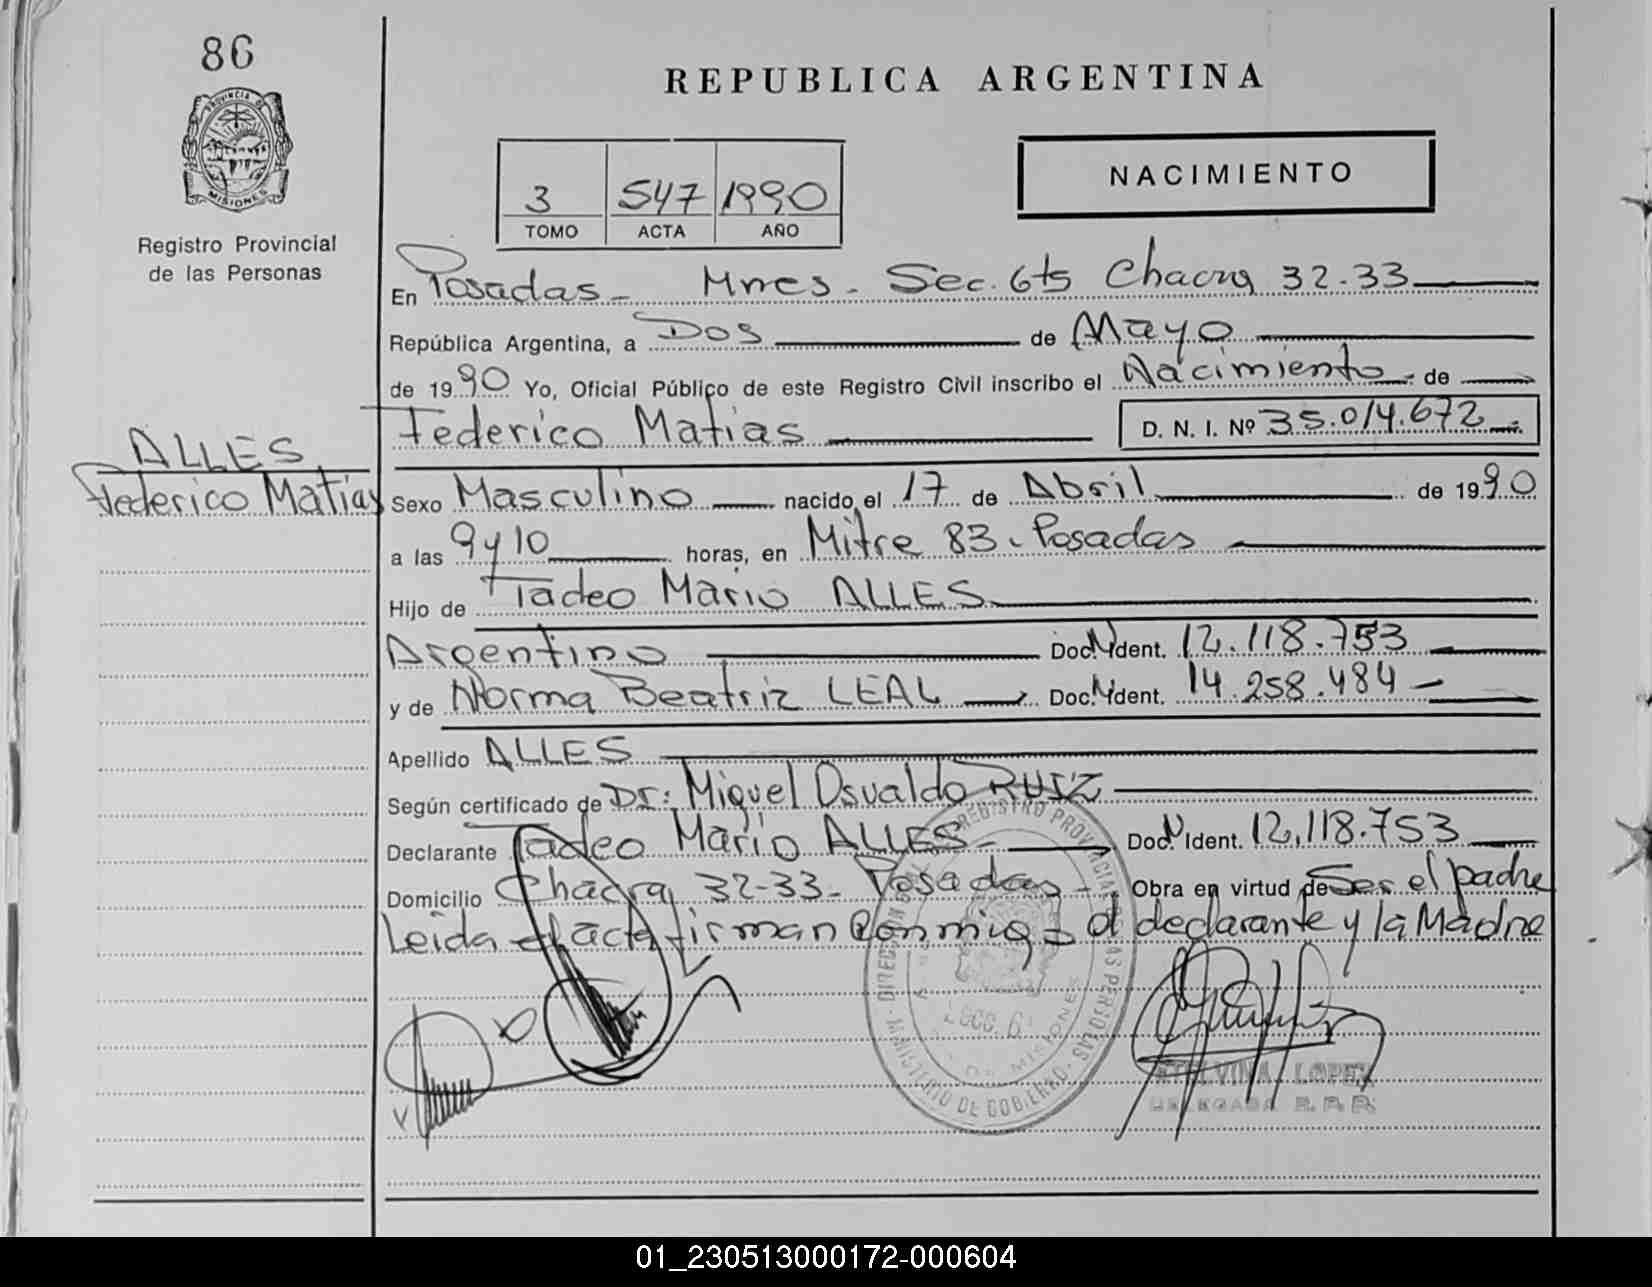 86
PROVINCIA DE
MISIONES
Registro Provincial
de las Personas
REPUBLICA ARGENTINA
3 547 1990
TOMO ACTA AÑO
NACIMIENTO
En Posadas - Mnes. Sec. 6ta Chacra 32-33
República Argentina, a Dos de Mayo
de 1990 Yo, Oficial Público de este Registro Civil inscribo el Nacimiento de
Federico Matias D. N. I. Nº 35.014.672
ALLES
Federico Matias
Sexo Masculino nacido el 17 de Abril de 1990
a las 9 y 10 horas, en Mitre 83. Posadas
Hijo de Tadeo Mario ALLES
Argentino Doc. N Ident. 12.118.753
y de Norma Beatriz LEAL Doc. N Ident. 14.258.484
Apellido ALLES
Según certificado de Dr: Miguel Osvaldo RUIZ
Declarante Tadeo Mario ALLES Doc. N Ident. 12.118.753
Domicilio Chacra 32-33 - Posadas - Obra en virtud de Ser el padre
Leida el acta firman conmigo el declarante y la Madre
MINISTERIO DE GOBIERNO - DIRECCION REGISTRO PROVINCIAL DE LAS PERSONAS
MISIONES
LOPEZ
DELEGADA R.P.P.
01_230513000172-000604